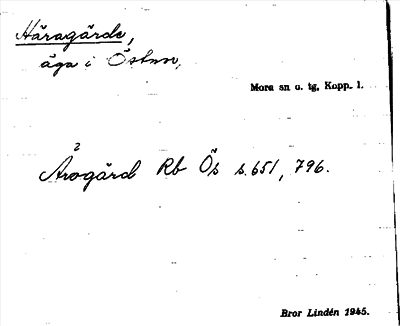 Häragärde,
äga i Östnor.
Mora sn o. tg, Kopp. l.
2
Årogärd Rb Ös s. 651, 796.
Bror Lindén 1945.